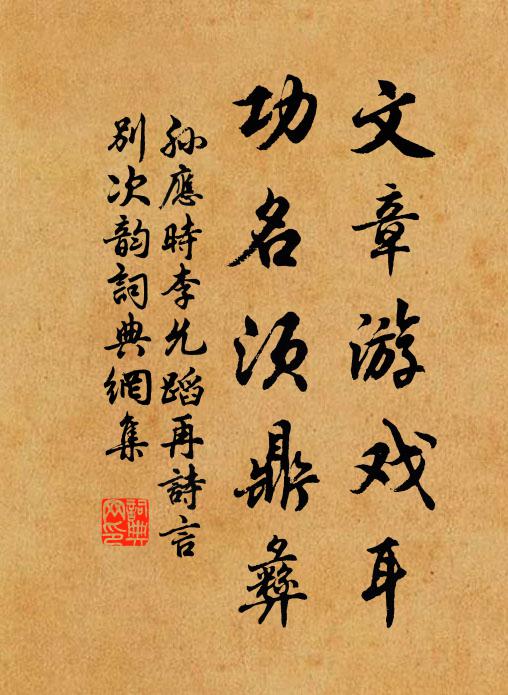 文章游戏耳
功名须鼎彝
孙應時李允蹈再詩言
别次韵詞典網集
詞典网印